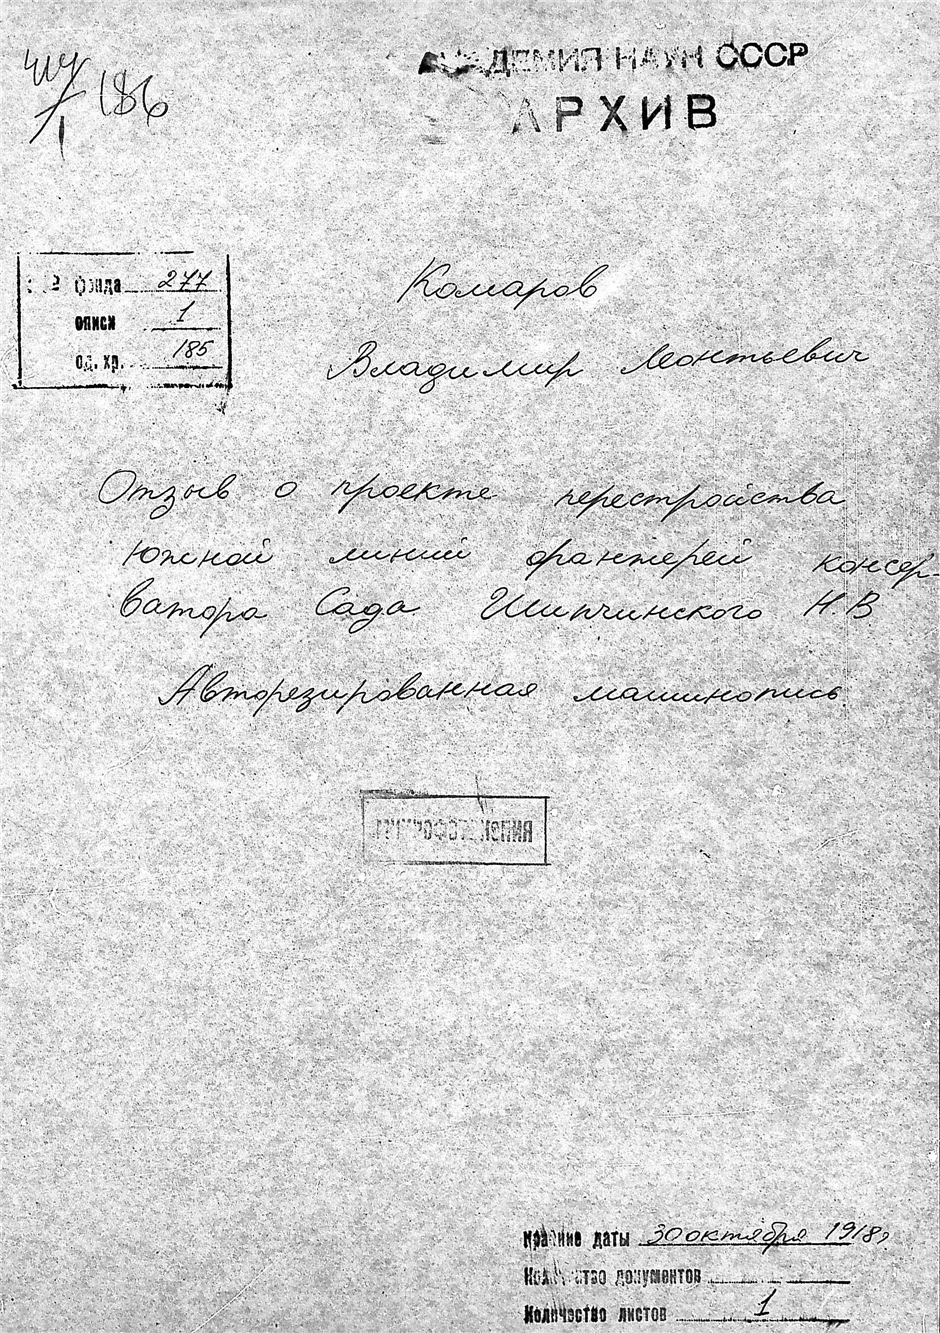 АКАДЕМИЯ НАУК СССР
АРХИВ
186
№ фонда 277
описи 1
ед. хр. 185
Комаров
Владимир Леонтьевич
Отзыв о проекте перестройства
южной линий оранжерей консер-
ватора Сада Шипчинского Н.В
Авторезированная машинопись
Крайние даты 30 октября 1918 г
Количество документов
Количество листов 1